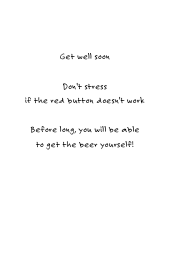 Get well soon
Don't stress
if the red button doesn't work
Before long, you will be able
to get the beer yourself!